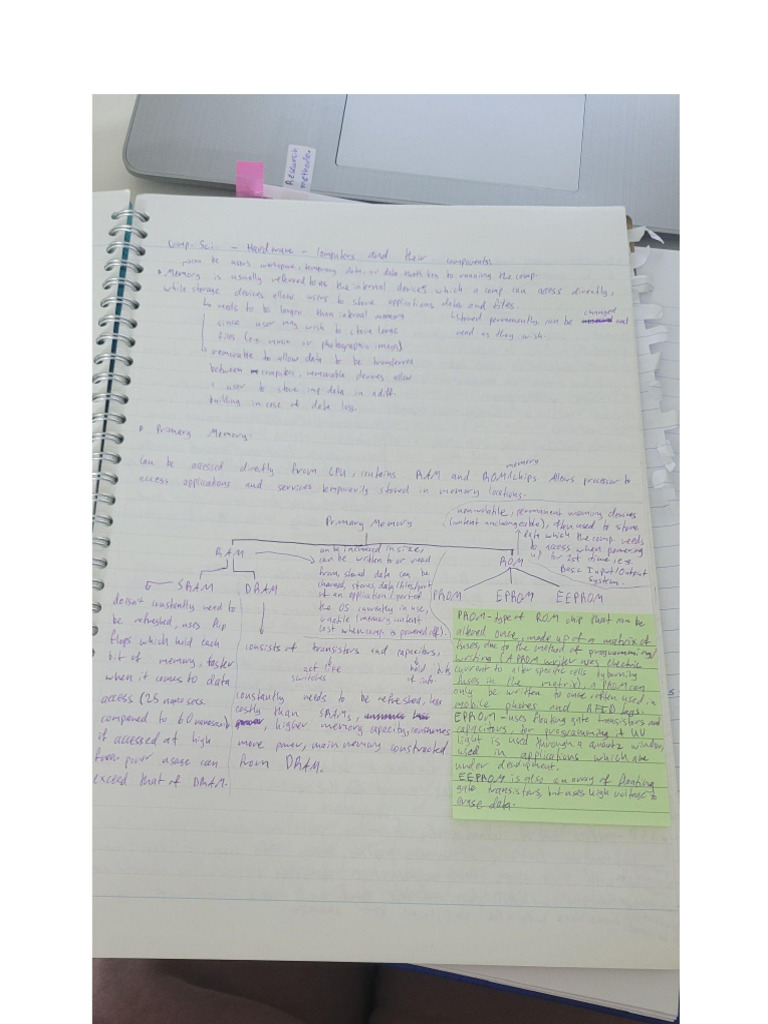 Research
methods.
Comp. Sci. - Hardware - Computers and their components.
Memory is usually referred to as the internal devices which a comp can access directly,
while storage devices allow users to store applications data and files.
needs to be larger than internal memory
since user may wish to store large
files (e.g. music or photographic images)
removable to allow data to be transferred
between computers, removable devices allow
a user to store imp data in a diff.
building in case of data loss.
stored permanently, can be changed and
read as they wish.
Primary Memory:
Can be accessed directly from CPU, contains RAM and ROM memory chips. Allows processor to
access applications and services temporarily stored in memory locations.
Primary Memory
RAM
can be increased in size,
can be written to or read
from, stored data can be
changed, stores data/files/part
of an application/part of
the OS currently in use,
volatile (memory content
lost when comp. is powered off).
ROM
non-volatile, permanent memory devices
(content unchangeable), often used to store
data which the comp. needs
to access when powering
up for 1st time (e.g.
Basic Input/Output
System.
SRAM
DRAM
PROM
EPROM
EEPROM
doesn't constantly need to
be refreshed, uses flip
flops which hold each
bit of memory, faster
when it comes to data
access (25 nanosecs.
compared to 60 nanosecs)
if accessed at high
power usage can
exceed that of DRAM.
consists of transistors and capacitors,
act like
switches
hold bits
of info.
constantly needs to be refreshed, less
costly than SRAMs,
higher memory capacity, consumes
more power, main memory constructed
from DRAM.
PROM - type of ROM chip that can be
altered once, made up of a matrix of
fuses, due to the method of programming/
writing (A PROM writer uses electric
current to alter specific cells by burning
fuses in the matrix), a PROM can
only be written to once, often used in
mobile phones and RFID tags.
EPROM - uses floating gate transistors and
capacitors, for programming it UV
light is used through a quartz window,
used in applications which are
under development.
EEPROM is also an array of floating
gate transistors, but uses high voltage to
erase data.